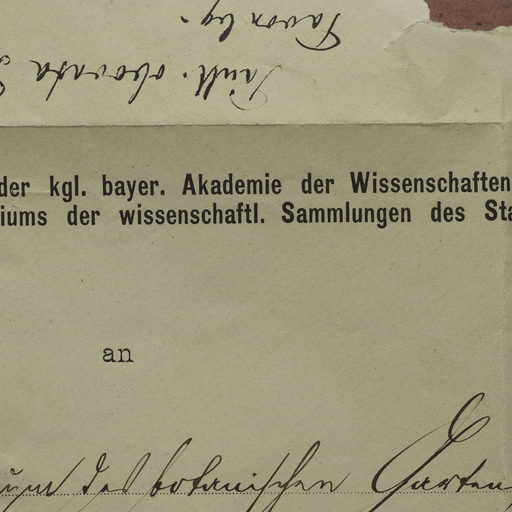 obovata
der kgl. bayer. Akademie der Wissenschaften
iums der wissenschaftl. Sammlungen des Sta
an
des botanischen Garten